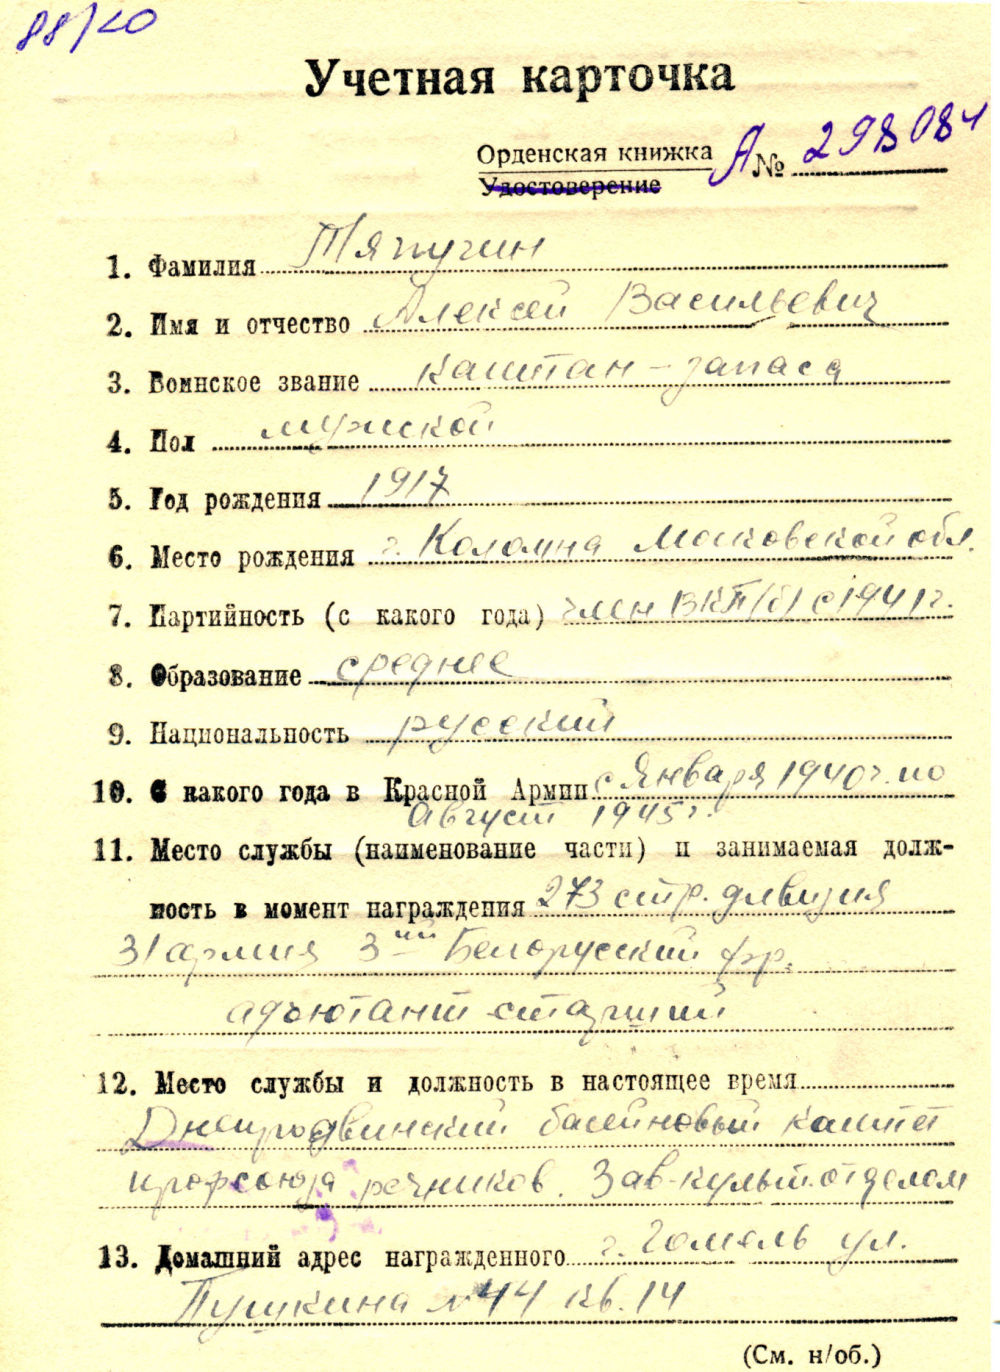 88/20
Учетная карточка
Орденская книжка А № 298084
Удостоверение
1. Фамилия Тяпугин
2. Имя и отчество Алексей Васильевич
3. Воинское звание капитан-запаса
4. Пол мужской
5. Год рождения 1917
6. Место рождения г. Коломна Московской обл.
7. Партийность (с какого года) член ВКП(б) с 1941 г.
8. Образование среднее
9. Национальность русский
10. С какого года в Красной Армии с Января 1940 г. по
Август 1945 г.
11. Место службы (наименование части) и занимаемая долж-
ность в момент награждения 273 стр. дивизия
31 армия 3ий Белорусский фр.
адъютант старший
12. Место службы и должность в настоящее время
Днепродвинский басейновый комитет
профсоюза речников. Зав. культотделом
13. Домашний адрес награжденного г. Гомель ул.
Пушкина № 44 кв. 14
(См. н/об.)